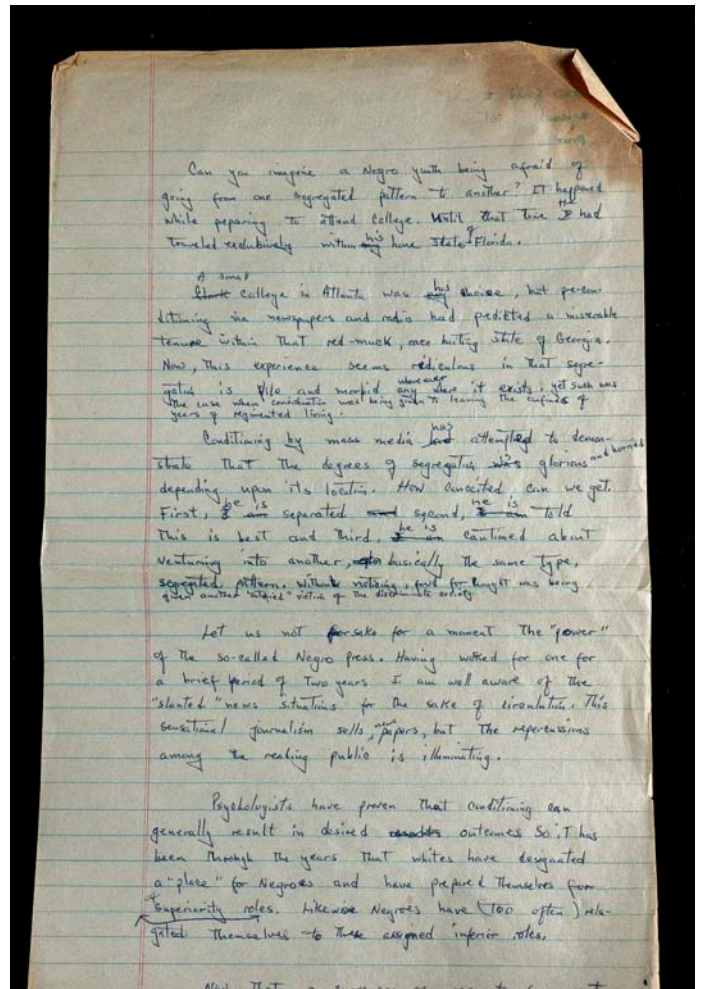 Can you imagine a Negro youth being afraid of
going from one segregated pattern to another? It happened
while preparing to attend College. Until that time I the had
traveled exclusively within my his home State of Florida.
A small
Clark College in Atlanta was my his choice, but pre-con-
ditioning via newspapers and radio had predicted a miserable
tenure within that red-muck, race baiting state of Georgia.
Now, this experience seems ridiculous in that segre-
gation is vile and morbid any where wherever it exists, yet such was
the case when consideration was being given to leaving the confines of
years of regimented living.
Conditioning by mass media had has attempted to demon-
strate that the degrees of segregation was is glorious and horrid
depending upon its location. How conceited can we get.
First, I am he is separated and second, I am he is told
this is best and third, I am he is cautioned about
venturing into another, basically the same type,
segregated pattern. Without noticing, food for thought was being
given another victim of the society.
Let us not forsake for a moment the "power"
of the so-called Negro press. Having worked for one for
a brief period of two years I am well aware of the
"slanted" news situations for the sake of circulation. This
sensational journalism sells news papers, but the repercussions
among the reading public is illuminating.
Psychologists have proven that conditioning can
generally result in desired results outcomes So it has
been through the years that whites have designated
a "place" for Negroes and have prepared themselves for
superiority roles. Likewise Negroes have (too often) rele-
gated themselves to these assigned inferior roles.